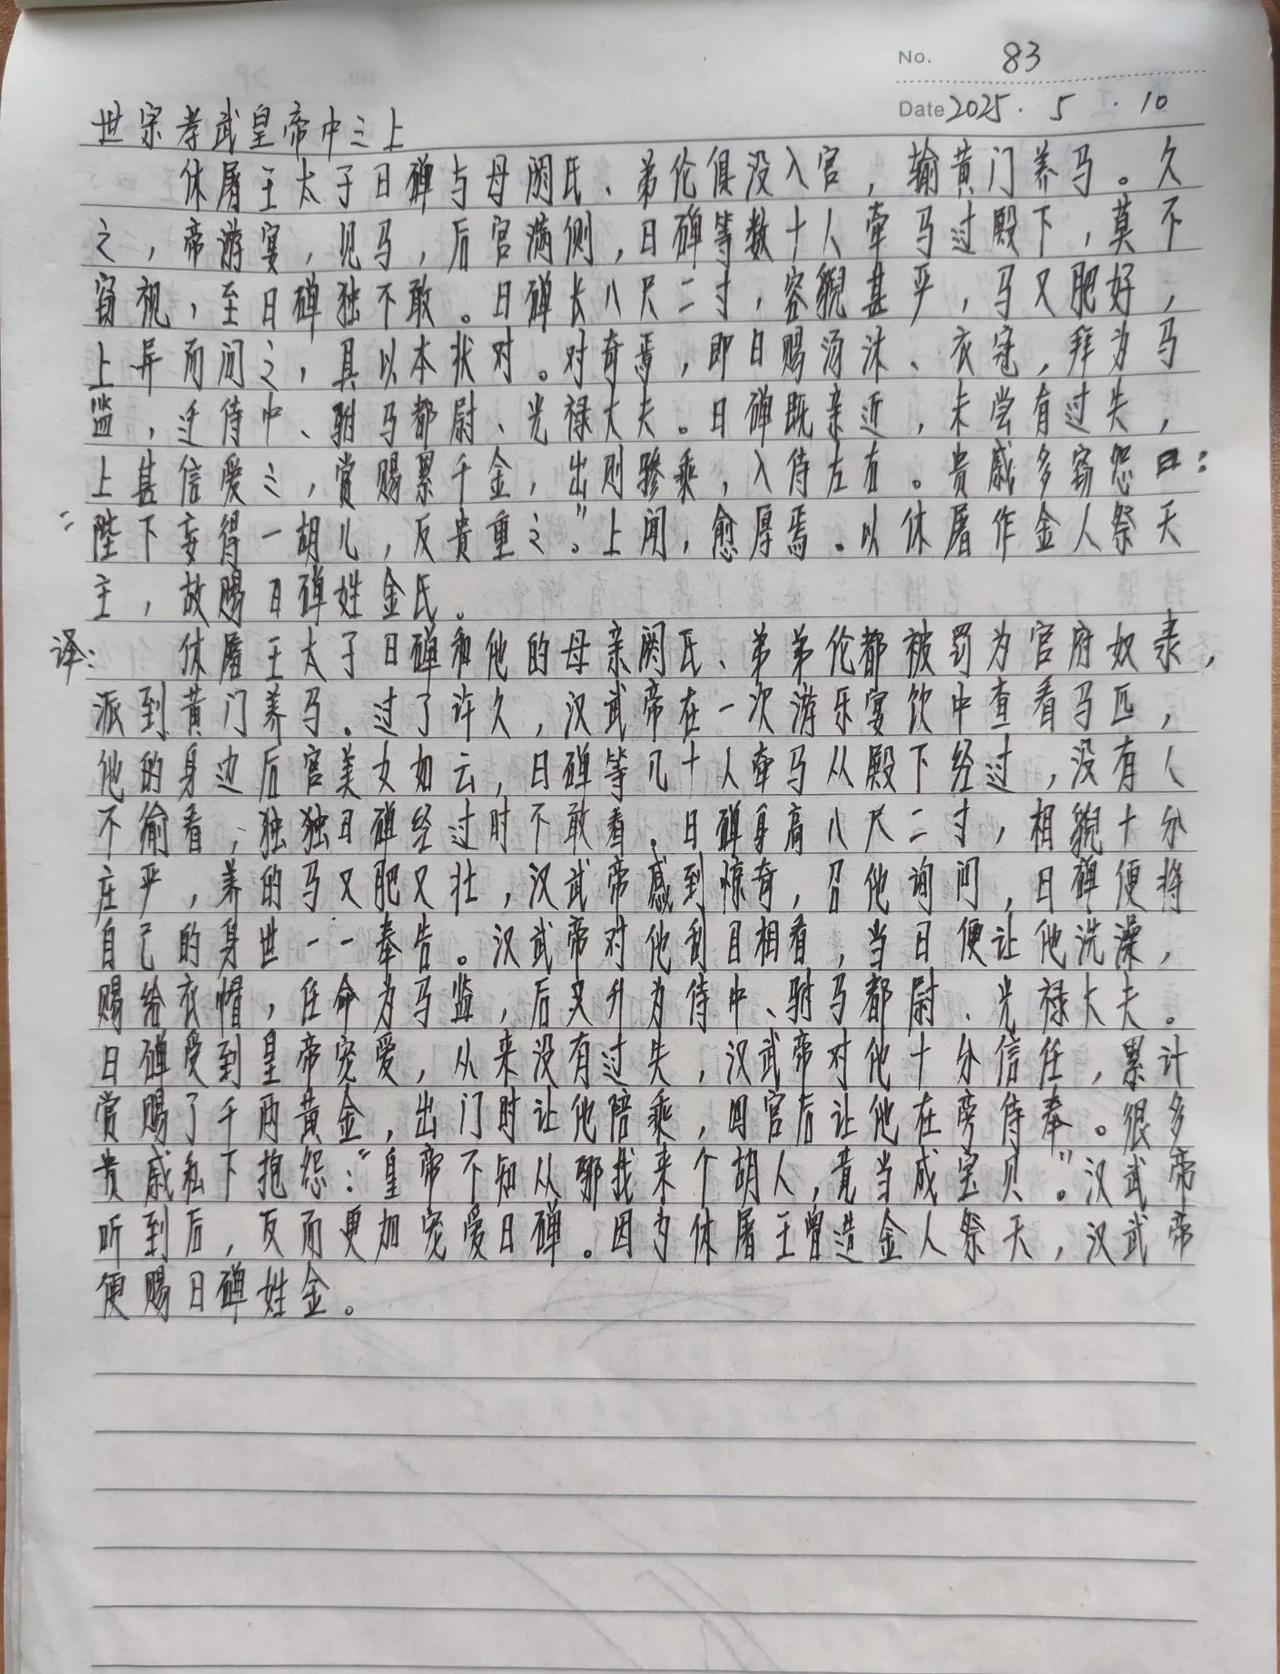 No. 83
Date 2025 . 5 . 10
世宗孝武皇帝中之上
休屠王太子日磾与母阏氏、弟伦俱没入官，输黄门养马。久
之，帝游宴，见马，后宫满侧，日磾等数十人牵马过殿下，莫不
窃视，至日磾独不敢。日磾长八尺二寸，容貌甚严，马又肥好，
上异而问之，具以本状对。对奇焉，即日赐汤沐、衣冠，拜为马
监，迁侍中、驸马都尉、光禄大夫。日磾既亲近，未尝有过失，
上甚信爱之，赏赐累千金，出则骖乘，入侍左右。贵戚多窃怨曰：
“陛下妄得一胡儿，反贵重之。”上闻，愈厚焉。以休屠作金人祭天
主，故赐日磾姓金氏。
译： 休屠王太子日磾和他的母亲阏氏、弟弟伦都被罚为官府奴隶，
派到黄门养马。过了许久，汉武帝在一次游乐宴饮中查看马匹，
他的身边后宫美女如云，日磾等几十人牵马从殿下经过，没有人
不偷看，独独日磾经过时不敢看。日磾身高八尺二寸，相貌十分
庄严，养的马又肥又壮，汉武帝感到惊奇，召他询问，日磾便将
自己的身世一一奉告。汉武帝对他刮目相看，当日便让他洗澡，
赐给衣帽，任命为马监，后又升为侍中、驸马都尉、光禄大夫。
日磾受到皇帝宠爱，从来没有过失，汉武帝对他十分信任，累计
赏赐了千两黄金，出门时让他陪乘，回宫后让他在旁侍奉。很多
贵戚私下抱怨：“皇帝不知从哪找来个胡人，竟当成宝贝。”汉武帝
听到后，反而更加宠爱日磾。因为休屠王曾造金人祭天，汉武帝
便赐日磾姓金。